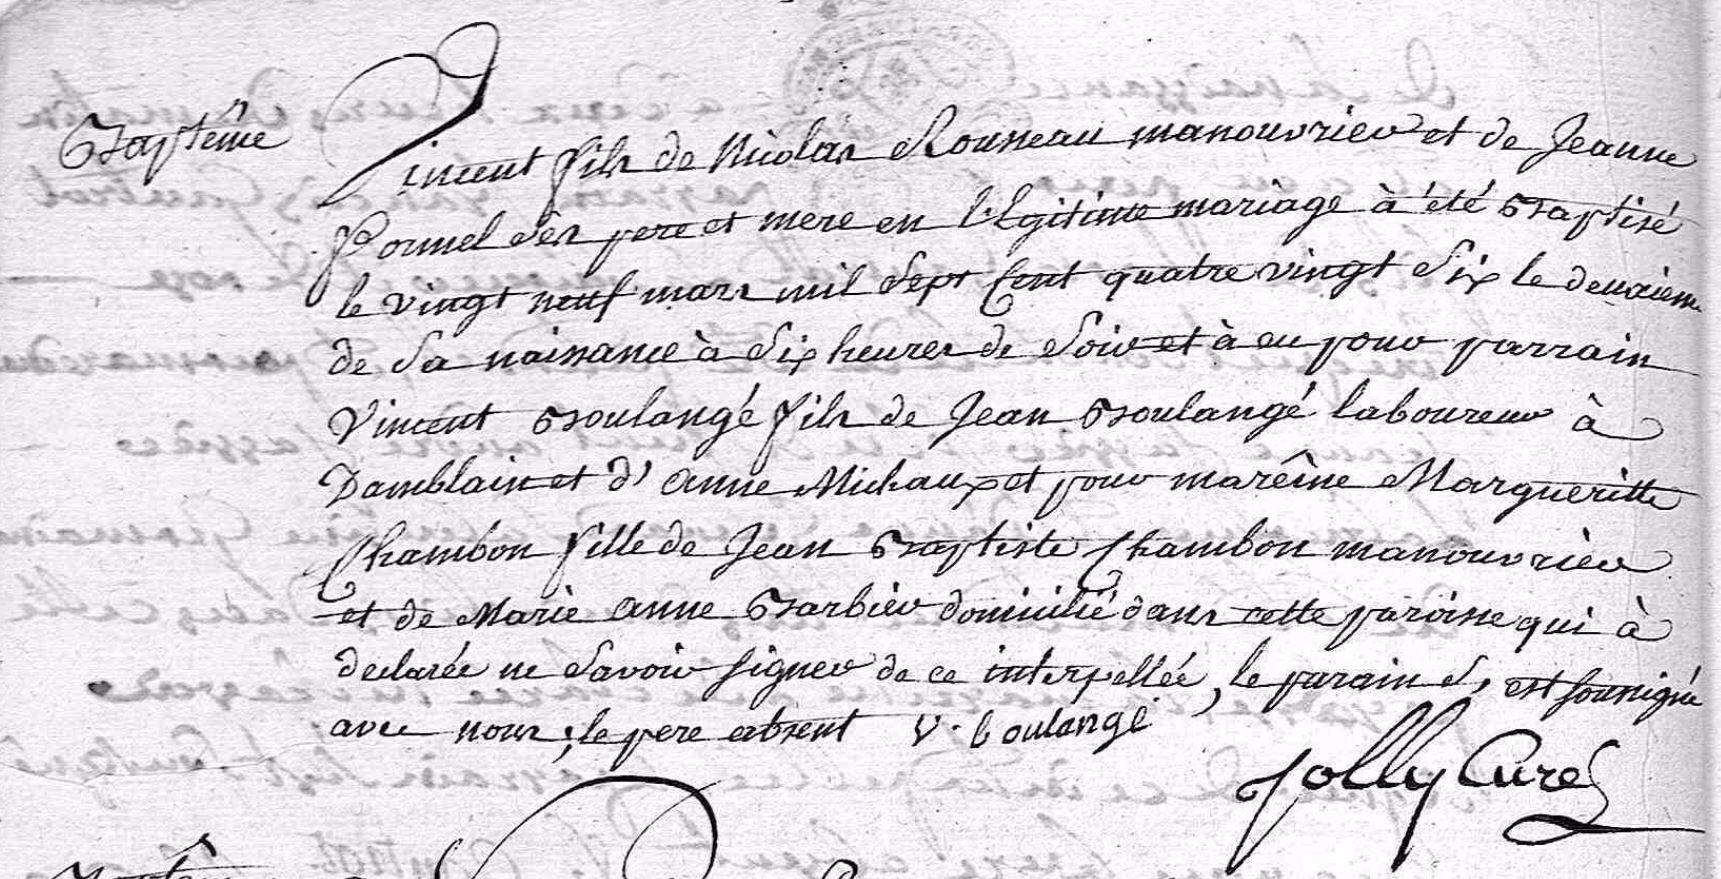 Baptême
Vincent fils de Nicolas Rousseau manouvrier et de Jeanne
Pormel ses pere et mere en légitime mariàge à été baptisé
le vingt neuf mars mil sept cent quatre vingt six le deuxieme
de sa naissance à six heures de soir et à eu pour parrain
Vincent Boulangé fils de Jean Boulangé laboureur à
Damblain et d'anne Michaux et pour marêine Margueritte
Chambon fille de Jean Baptiste Chambon manouvrier
et de Marie anne Barbier domicilié dans cette paroisse qui à
declarée ne savoir signer de ce interpellée, le parain s, est soussigné
avec nous, le pere absent V. boulangé
Jolly Curé
Baptême